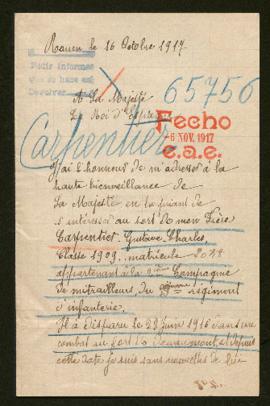 Rouen, le 16 Octobre 1917.
Pedir informes
que se hace en
Devolver
65756
A Sa Majesté
Le Roi d'Espagne
Fecho
6 NOV. 1917
e.a.e.
Carpentier
J'ai l'honneur de m'adresser à la
haute bienveillance de
Sa Majesté en la priant de
s'intéresser au sort de mon frère
Carpentier. Gustave. Charles
Classe 1909. matricule
appartenant à la 2ème Compagnie
de mitrailleurs du régiment
d'infanterie.
Il a disparu le 23 Juin 1916 dans un
combat au fort de Douaumont, et depuis
cette date je suis sans nouvelles de lui